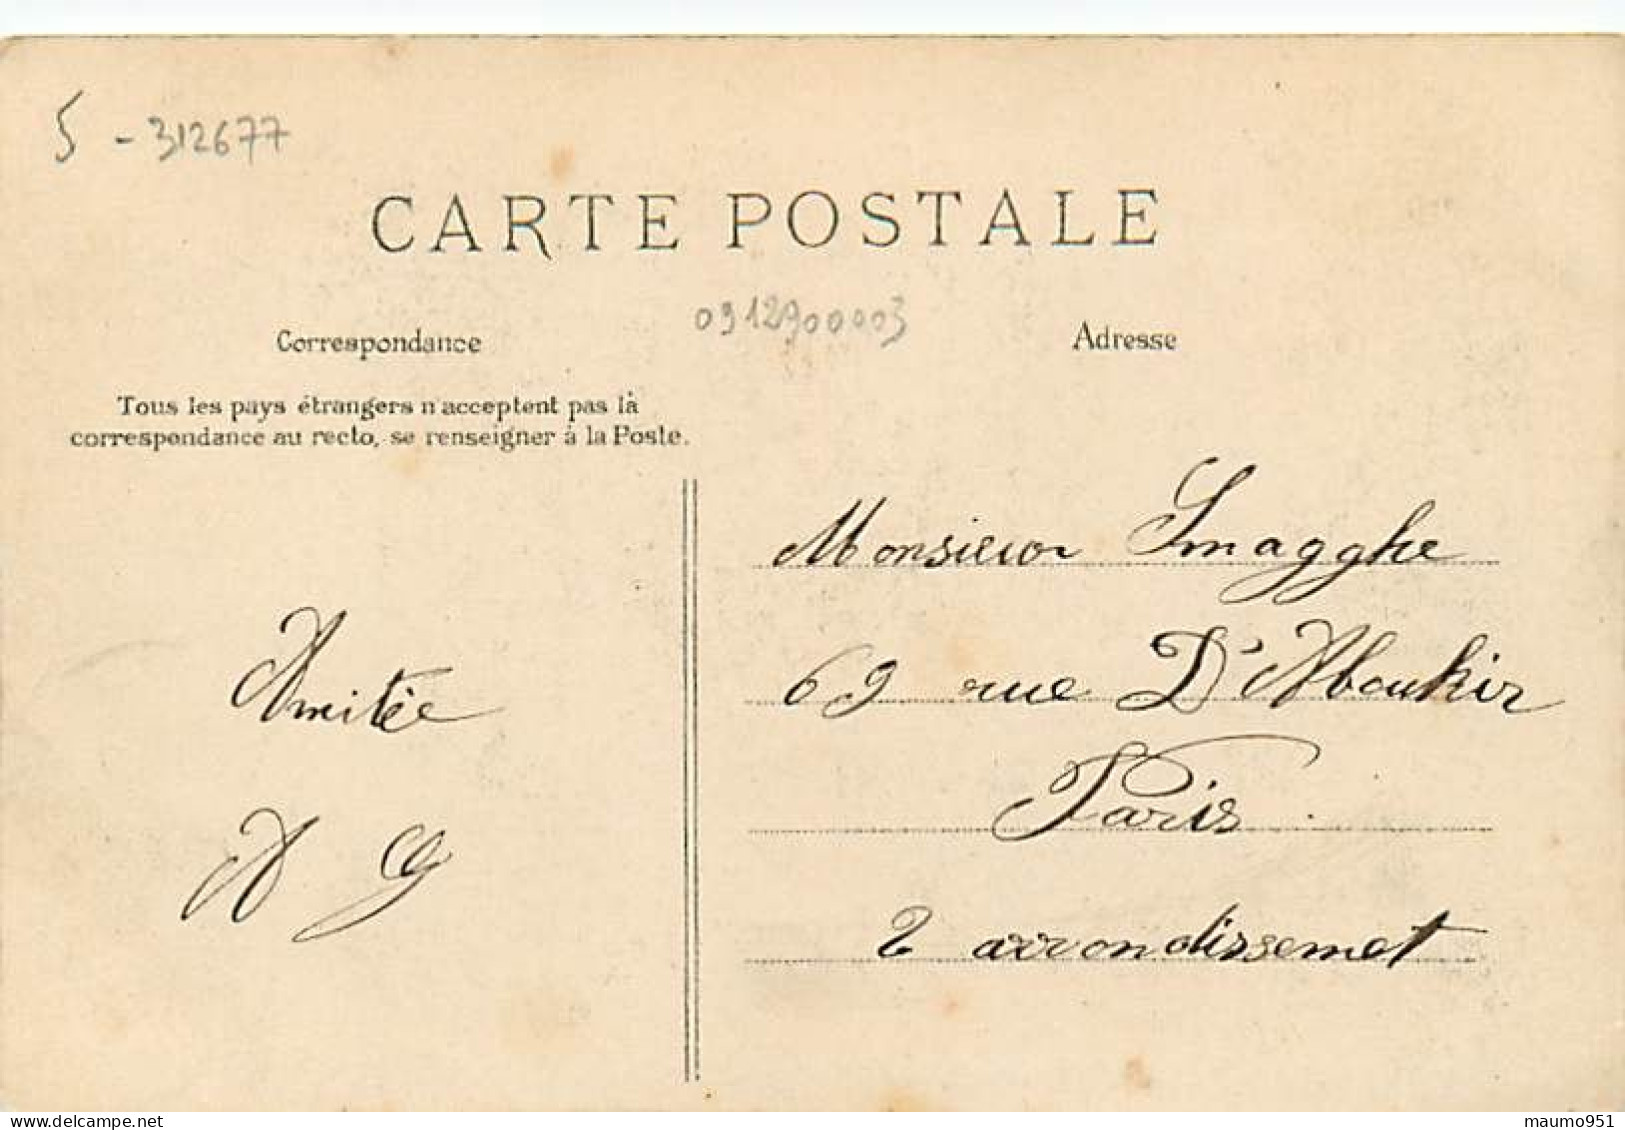 5 - 312677
CARTE POSTALE
0912900003
Correspondance
Adresse
Tous les pays étrangers n'acceptent pas là
correspondance au recto, se renseigner à la Poste.
Monsieur Smagghe
69 rue D'Aboukir
Paris
2 arrondissemet
Amitée
A G
maumo951